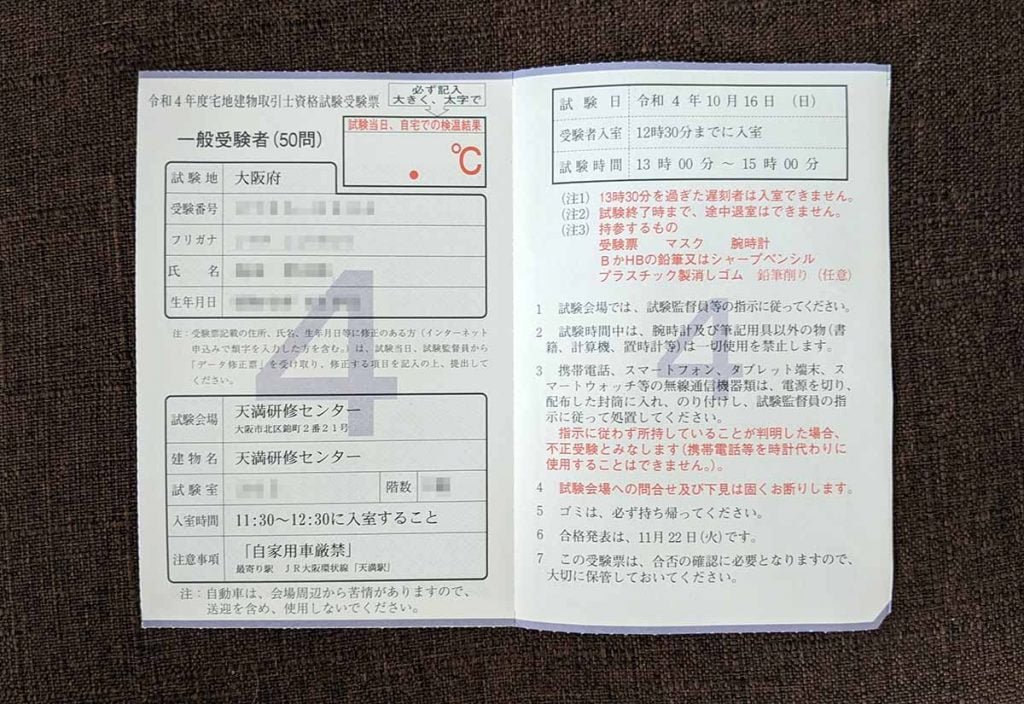 令和4年度宅地建物取引士資格試験受験票
必ず記入
大きく、太字で
一般受験者(50問)
試験当日、自宅での検温結果
. ℃
試験地 大阪府
受験番号
フリガナ
氏名
生年月日
4
注:受験票記載の住所、氏名、生年月日等に修正のある方(インターネット
申込みで類字を入力した方を含む。)は、試験当日、試験監督員から
「データ修正票」を受け取り、修正する項目を記入の上、提出して
ください。
試験会場 天満研修センター
大阪市北区錦町2番21号
建物名 天満研修センター
試験室 階数
入室時間 11:30~12:30に入室すること
注意事項 「自家用車厳禁」
最寄り駅 JR大阪環状線「天満駅」
注:自動車は、会場周辺から苦情がありますので、
送迎を含め、使用しないでください。
試験日 令和4年10月16日 (日)
受験者入室 12時30分までに入室
試験時間 13時00分~15時00分
(注1) 13時30分を過ぎた遅刻者は入室できません。
(注2) 試験終了時まで、途中退室はできません。
(注3) 持参するもの
受験票 マスク 腕時計
BかHBの鉛筆又はシャープペンシル
プラスチック製消しゴム 鉛筆削り(任意)
4
1 試験会場では、試験監督員等の指示に従ってください。
2 試験時間中は、腕時計及び筆記用具以外の物(書
籍、計算機、置時計等)は一切使用を禁止します。
3 携帯電話、スマートフォン、タブレット端末、ス
マートウォッチ等の無線通信機器類は、電源を切り、
配布した封筒に入れ、のり付けし、試験監督員の指
示に従って処置してください。
指示に従わず所持していることが判明した場合、
不正受験とみなします(携帯電話等を時計代わりに
使用することはできません。)。
4 試験会場への問合せ及び下見は固くお断りします。
5 ゴミは、必ず持ち帰ってください。
6 合格発表は、11月22日(火)です。
7 この受験票は、合否の確認に必要となりますので、
大切に保管しておいてください。